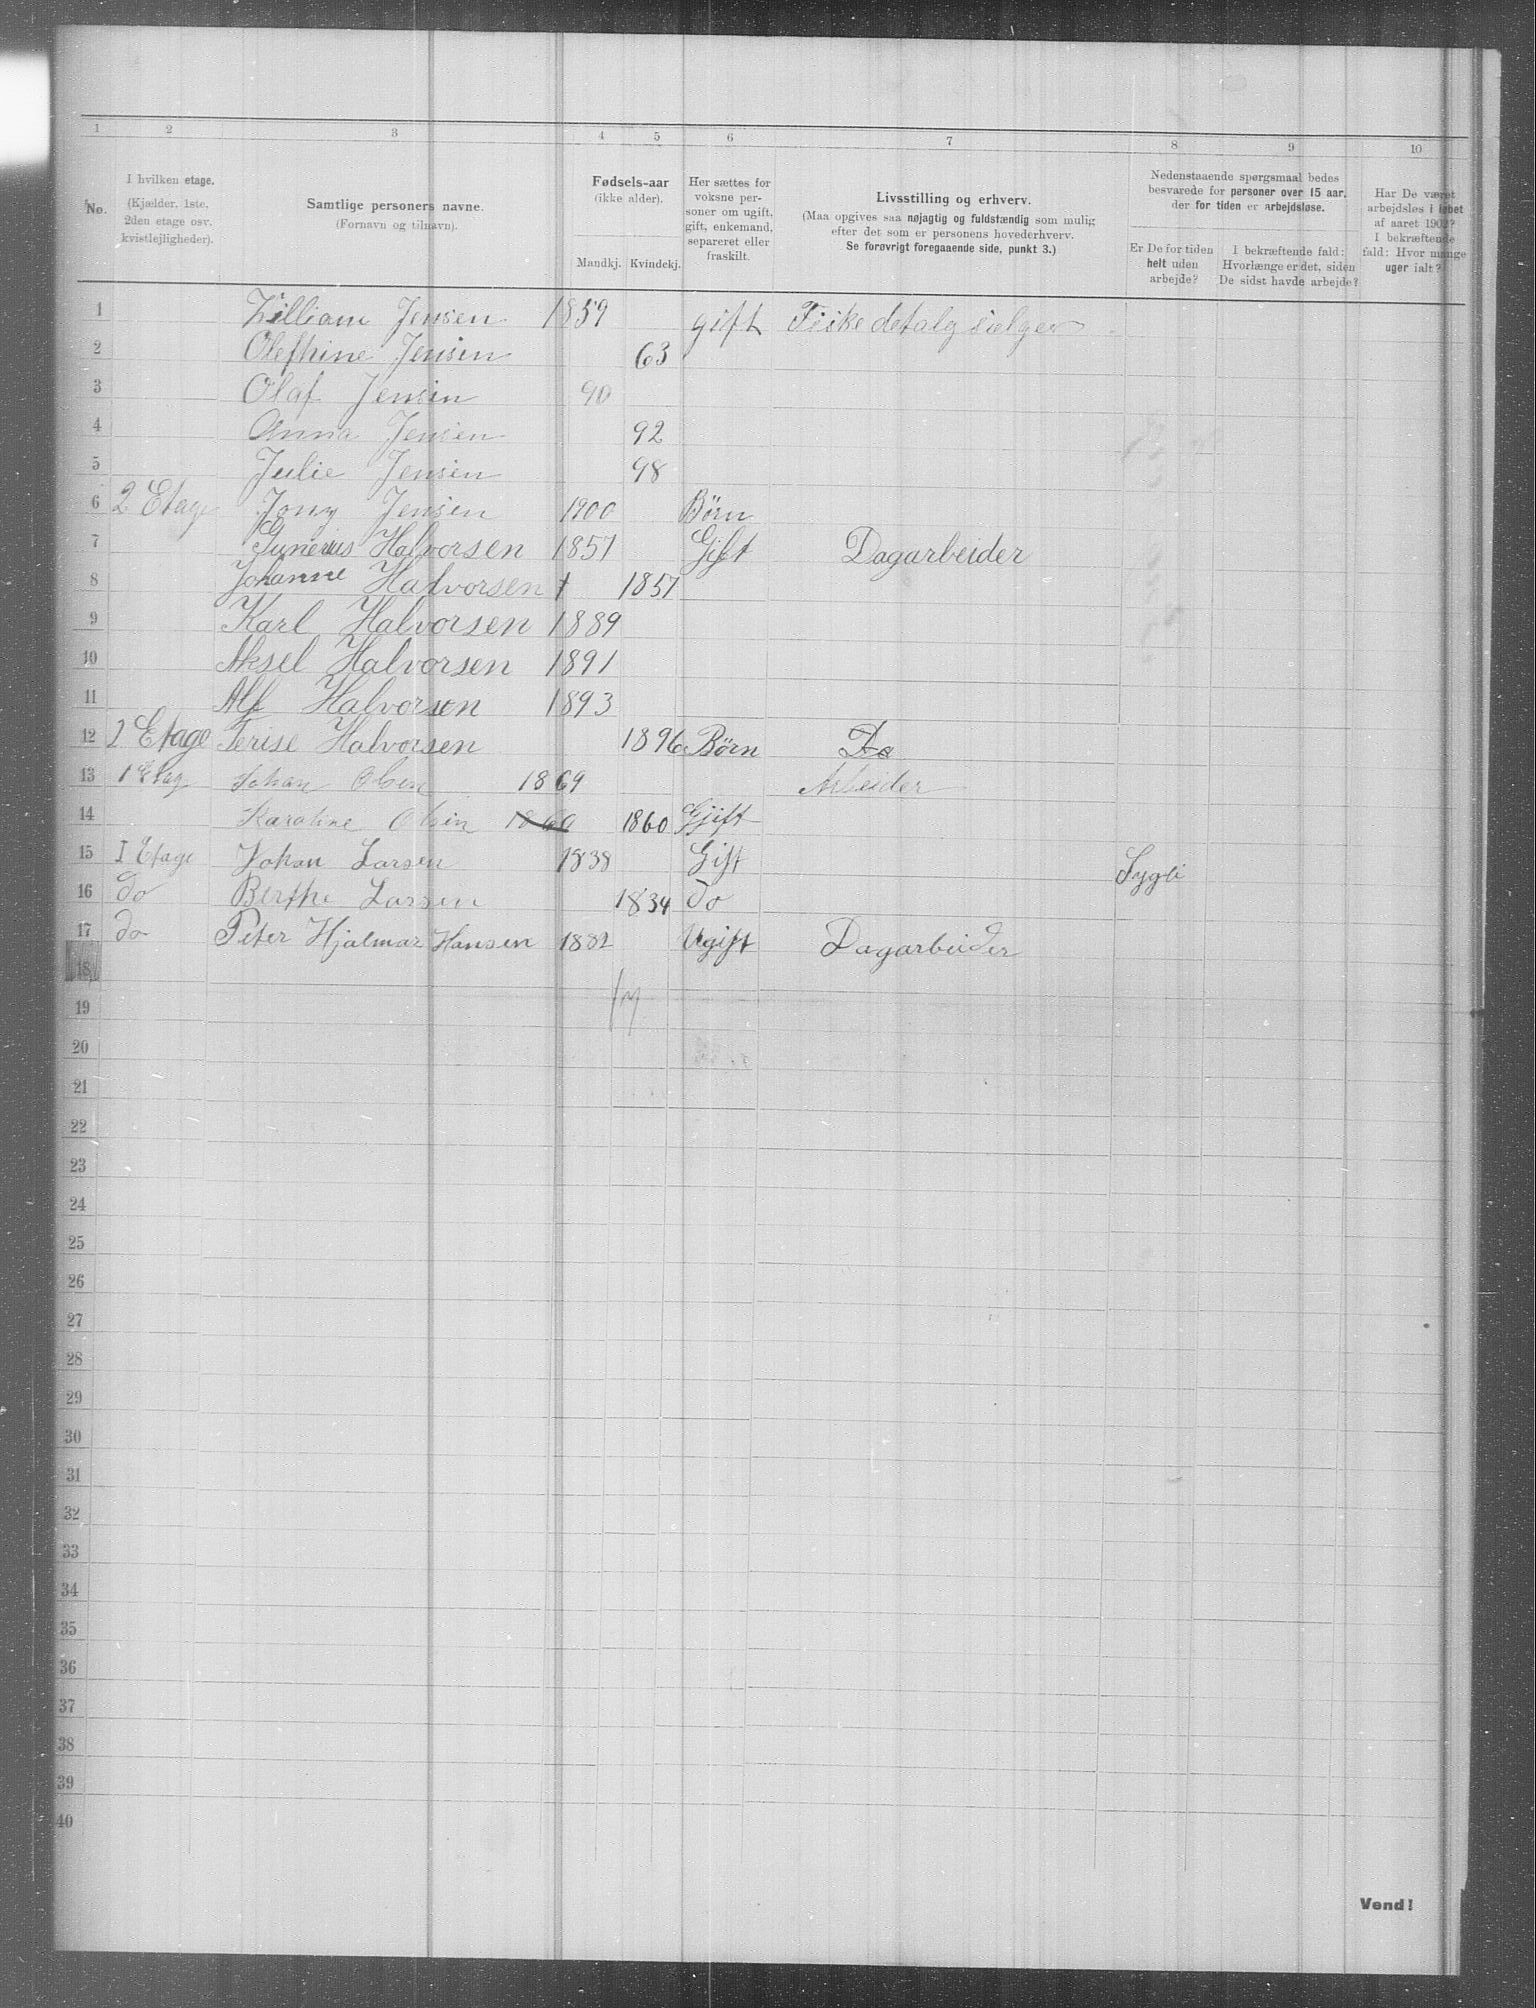 1 2 3 4 5 6 7 8 9 10
No.
I hvilken etage.
(Kjælder, 1ste,
2den etage osv.
kvistlejligheder).
Samtlige personers navne.
(Fornavn og tilnavn).
Fødsels-aar
(ikke alder).
Mandkj. Kvindekj.
Her sættes for
voksne per-
soner om ugift,
gift, enkemand,
separeret eller
fraskilt.
Livsstilling og erhverv.
(Maa opgives saa nøjagtig og fuldstændig som mulig
efter det som er personens hovederhverv.
Se forøvrigt foregaaende side, punkt 3.)
Nedenstaaende spørgsmaal bedes
besvarede for personer over 15 aar,
der for tiden er arbejdsløse.
Er De for tiden
helt uden
arbejde?
I bekræftende fald:
Hvorlænge er det, siden
De sidst havde arbejde?
Har De været
arbejdsløs i løbet
af aaret 1902?
I bekræftende
fald: Hvor mange
uger ialt?
1 William Jensen 1859 gift Fiskedetalgsælger
2 Olefhine Jensen 63
3 Olaf Jensen 90
4 Anna Jensen 92
5 Julie Jensen 98
6 2 Etage Jony Jensen 1900 Børn
7 Gunerius Halvorsen 1857 Gift Dagarbeider
8 Johanne Halvorsen 1857
9 Karl Halvorsen 1889
10 Aksel Halvorsen 1891
11 Alf Halvorsen 1893
12 2 Etage Terise Halvorsen 1896 Børn Do
13 1 Etag Johan Olsen 1869 Arbeider
14 Karoline Olsen 1860 1860 Gjift
15 I Etage Johan Larsen 1838 Gift Sygli
16 do Berthe Larsen 1834 do
17 do Peter Hjalmar Hansen 1882 Ugift Dagarbeider
18
19
20
21
22
23
24
25
26
27
28
29
30
31
32
33
34
35
36
37
38
39
40
Vend!